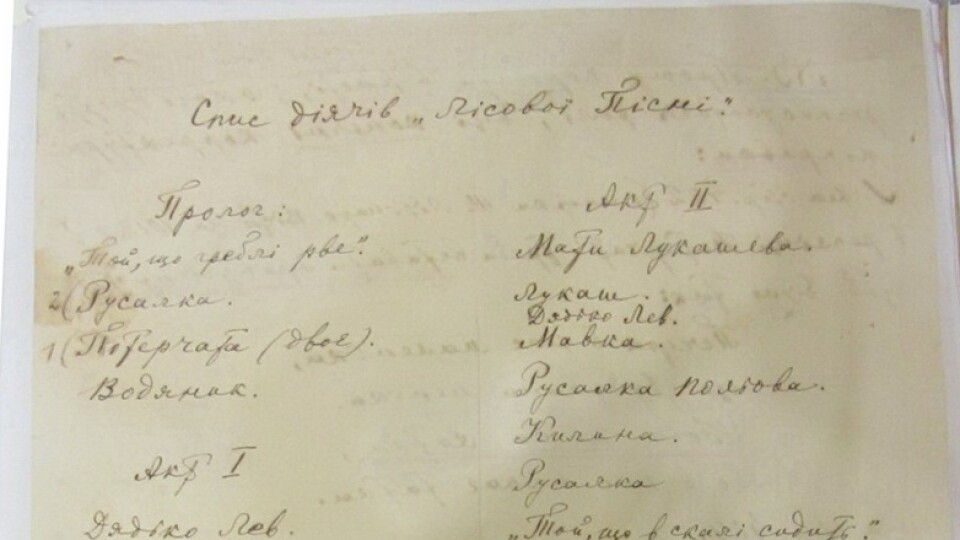 Спис діячів „Лісової Пісні":
Пролог:
„Той, що греблі рве".
2( Русалка.
1( Потерчата (двоє).
Водяник.
Акт I
Дядько Лев.
Акт II
Мати Лукашева.
Лукаш.
Дядько Лев.
Мавка.
Русалка Польова.
Килина.
Русалка
„Той, що в скалі сидить".